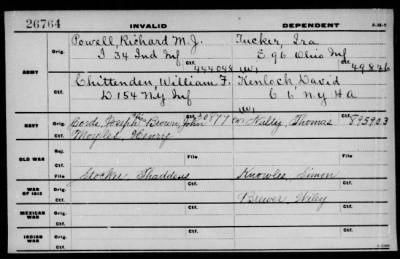 26764 INVALID DEPENDENT
Orig. Powell, Richard M. J. Tucker, Ira
I 34 Ind Inf E 96 Ohio Inf
ARMY 444048 49846
Ctf. Chittenden, William F. Kenlock David
D 154 N.Y. Inf C 6 N.Y. H A
NAVY Orig. Joseph Brown, John Nulty, Thomas
Ctf. Moyles, Henry
OLD WAR Rej.
File File
WAR OF 1812 Stocker, Thaddeus Knowles, Simon
Ctf. Ctf. Brewer, Wiley
MEXICAN WAR Orig.
Ctf. Ctf.
INDIAN WAR Orig.
Ctf. Ctf.